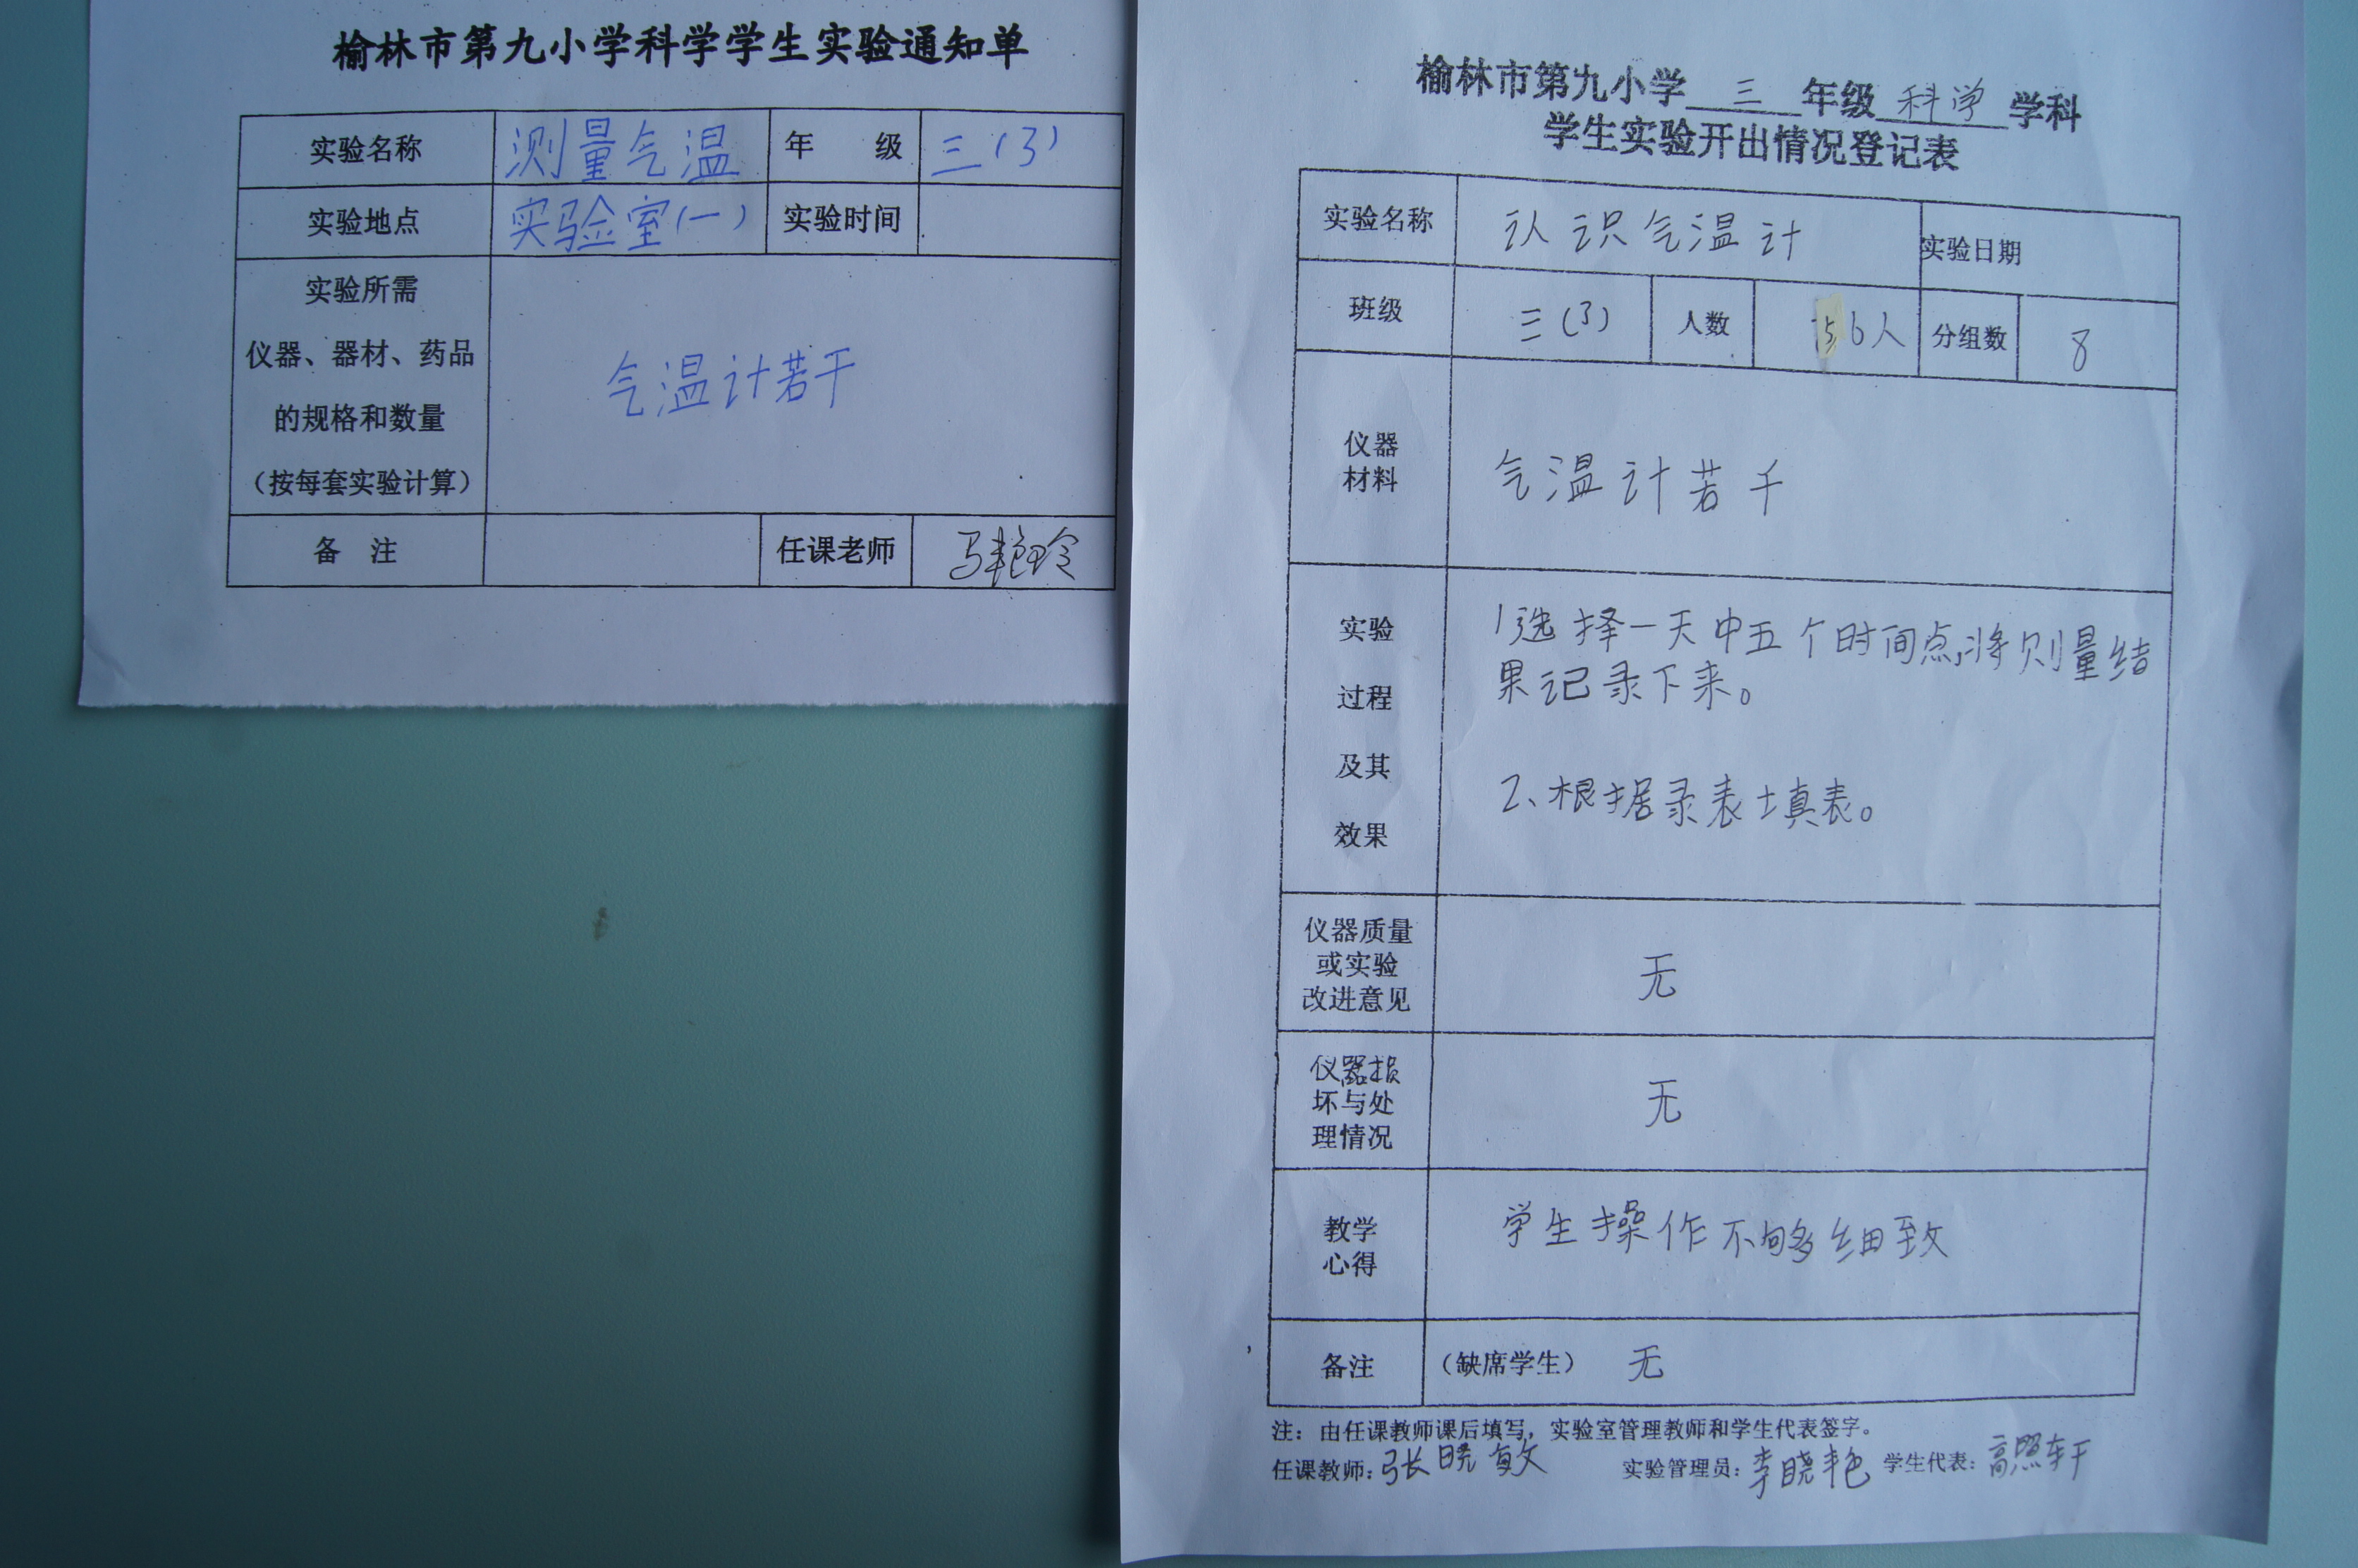 榆林市第九小学科学学生实验通知单
实验名称 测量气温 年 级 三(3)
实验地点 实验室(一) 实验时间
实验所需
仪器、器材、药品
的规格和数量
(按每套实验计算)
气温计若干
备 注 任课老师 马艳玲
榆林市第九小学 三 年级 科学 学科
学生实验开出情况登记表
实验名称 认识气温计 实验日期
班级 三(3) 人数 56人 分组数 8
仪器
材料
气温计若干
实验
过程
及其
效果
1选择一天中五个时间点,将则量结
果记录下来。
2、根据录表填表。
仪器质量
或实验
改进意见
无
仪器损
坏与处
理情况
无
教学
心得
学生操作不够细致
备注 (缺席学生) 无
注:由任课教师课后填写,实验室管理教师和学生代表签字。
任课教师:张晓敏 实验管理员:李晓艳 学生代表:高照轩